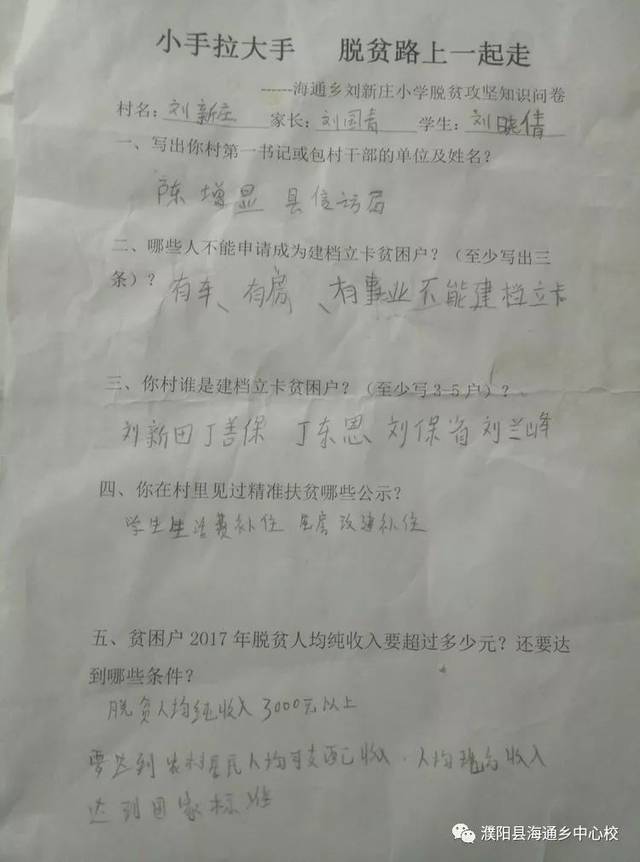 小手拉大手 脱贫路上一起走
------海通乡刘新庄小学脱贫攻坚知识问卷
村名：刘新庄 家长：刘国青 学生：刘晓倩
一、写出你村第一书记或包村干部的单位及姓名？
陈增显 县信访局
二、哪些人不能申请成为建档立卡贫困户？（至少写出三
条）？
有车、有房、有事业不能建档立卡
三、你村谁是建档立卡贫困户？（至少写3-5户）？
刘新田 丁善保 丁东思 刘保省 刘兰峰
四、你在村里见过精准扶贫哪些公示？
学生生活费补位 危房改建补位
五、贫困户2017年脱贫人均纯收入要超过多少元？还要达
到哪些条件？
脱贫人均纯收入3000元以上
要达到农村居民人均可支配收入.人均现金收入
达到国家标准
濮阳县海通乡中心校